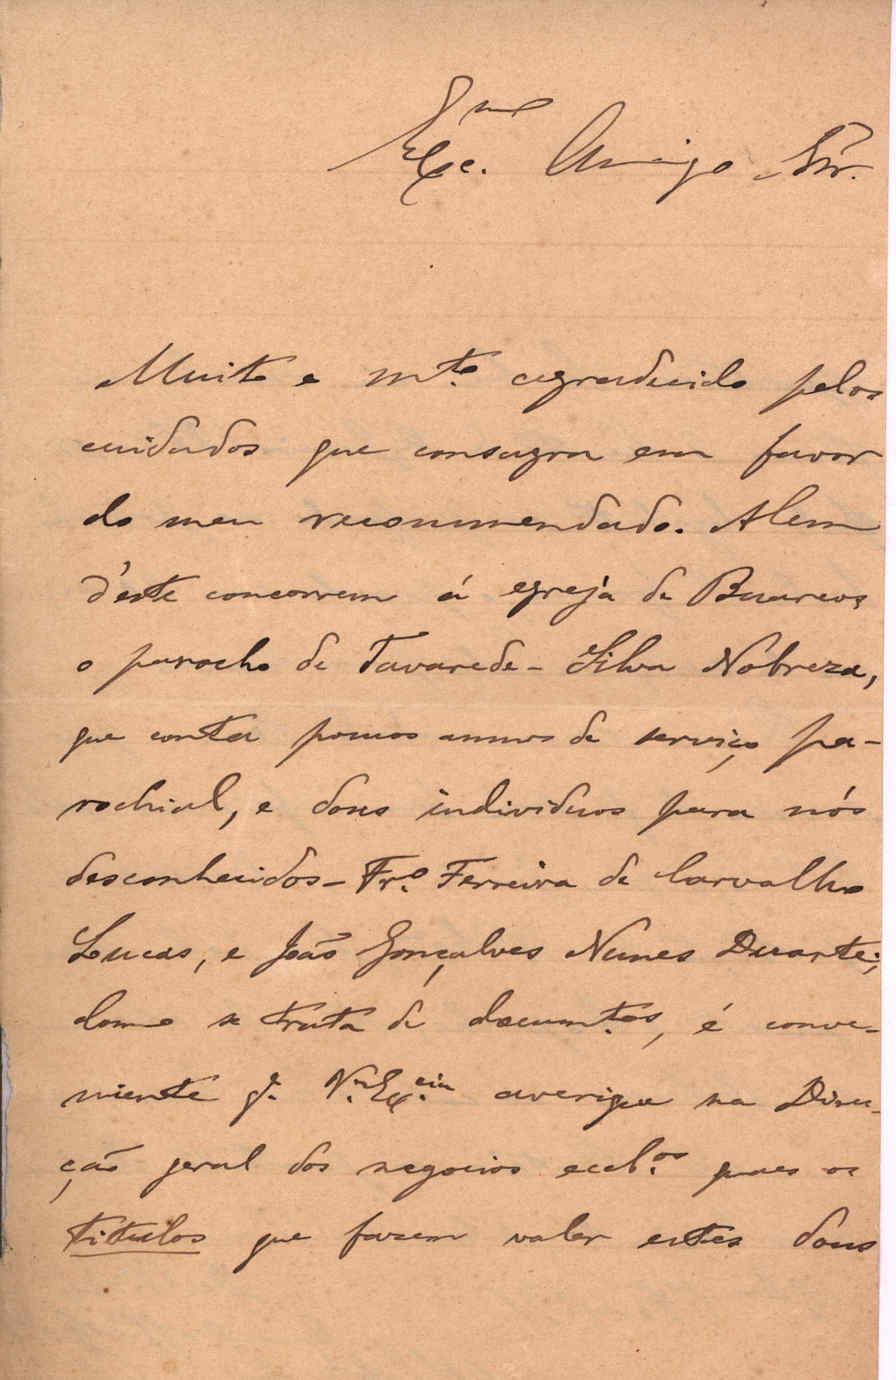 Exc.mo Amigo Snr.
Muito e mto. agradecido pelos
cuidados que consagra em favor
do meu recommendado. Alem
d'este concorrem á egreja de Buarcos,
o parocho de Tavarede - Silva Nobreza,
que conta poucos annos de serviço pa-
rochial, e dous individuos para nós
desconhecidos - Fro. Ferreira de Carvalho
Lucas, e João Gonçalves Nunes Duarte;
Como se trata de documtos., é conve-
niente q. V. Excia. averigue na Direc-
ção geral dos negocios eccl.os quaes os
titulos que fazem valer estes dous